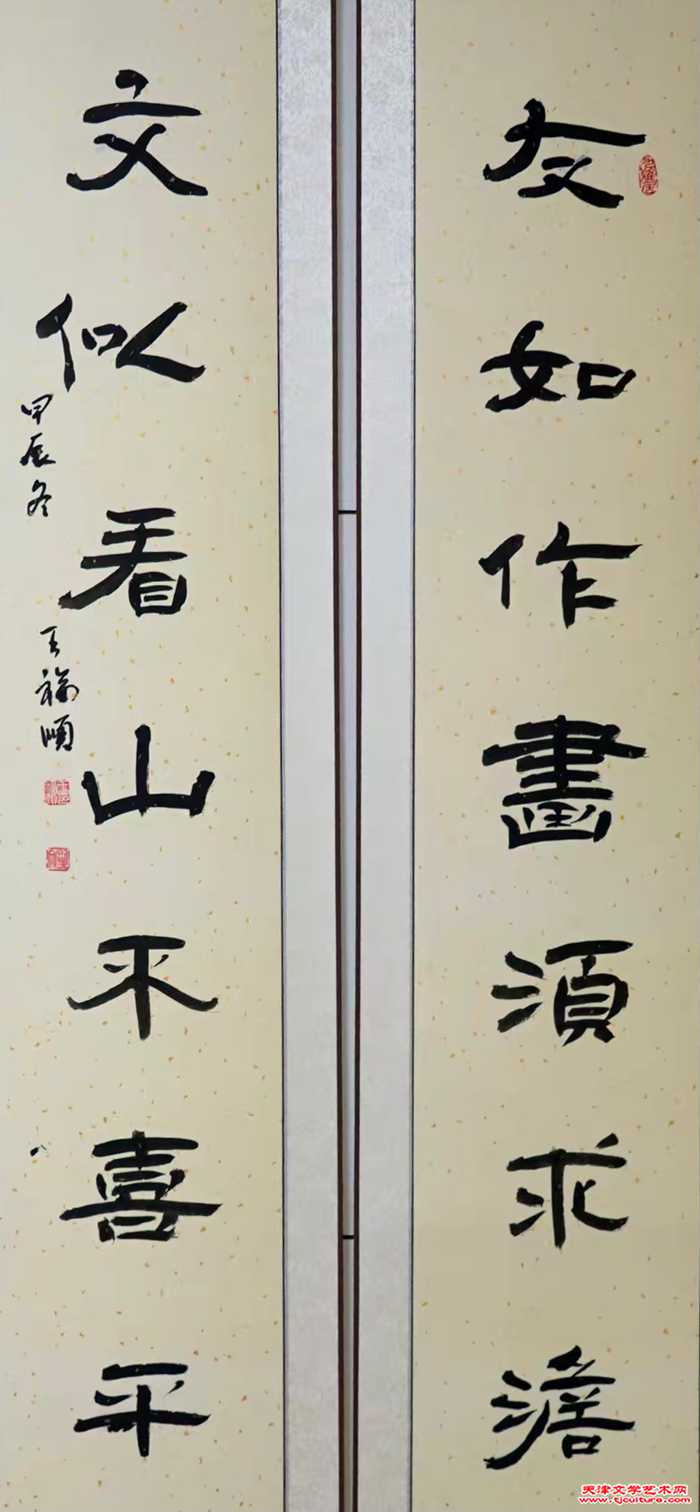 友如作畫湏求澹
文似看山不喜平
甲辰冬
王福順
天津文学艺术网
www.tjculture.com